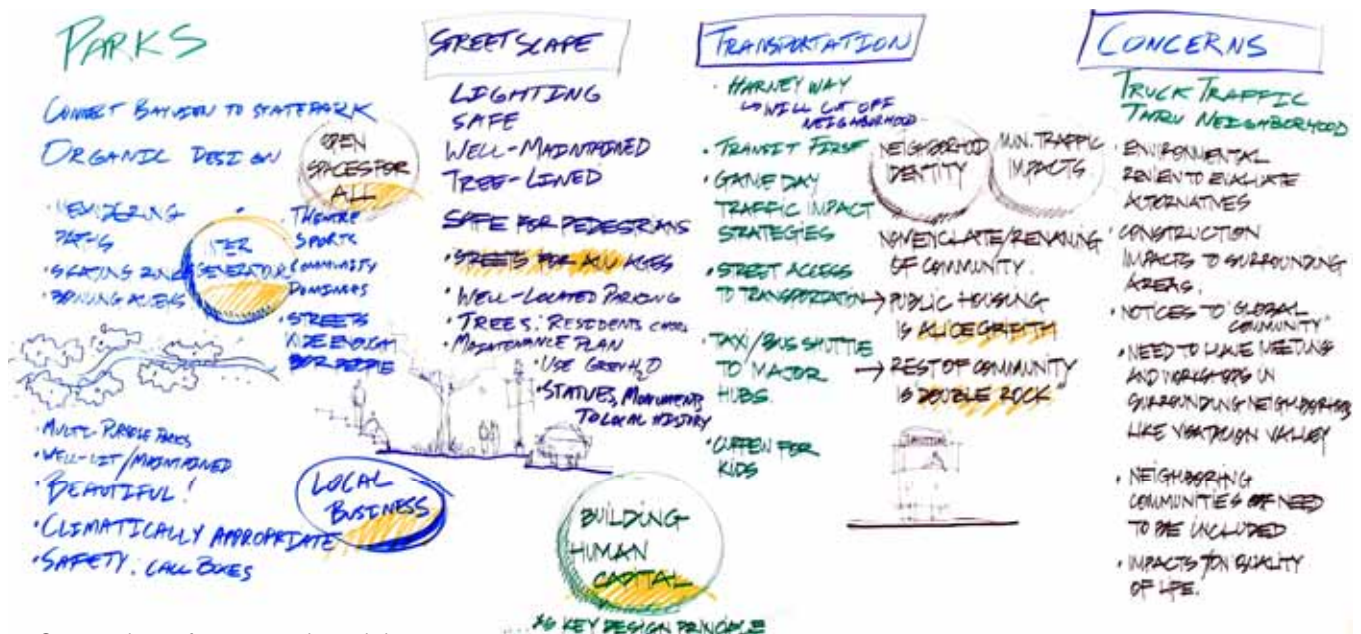 PARKS
CONNECT BAYVIEW TO STATE PARK
ORGANIC DESIGN
OPEN
SPACES FOR
ALL
• MEANDERING
PATHS
• SKATING RINK
INTER
GENERATIONAL
• THEATRE
SPORTS
COMMUNITY
DOMINOES
• STREETS
WIDE ENOUGH
FOR PEOPLE
• MULTI-PURPOSE PARKS
• WELL-LIT/MAINTAINED
• BEAUTIFUL!
• CLIMATICALLY APPROPRIATE
• SAFETY: CALL BOXES
LOCAL
BUSINESS
STREETSCAPE
LIGHTING
SAFE
WELL-MAINTAINED
TREE-LINED
SAFE FOR PEDESTRIANS
• STREETS FOR ALL AGES
• WELL-LOCATED PARKING
• TREES: RESIDENTS
• MAINTENANCE PLAN
• USE GREY H2O
• STATUES, MONUMENTS
TO LOCAL HISTORY
BUILDING
HUMAN
CAPITAL
KEY DESIGN PRINCIPLE
TRANSPORTATION
• HARNEY WAY
↳ WILL CUT OFF
NEIGHBORHOOD
• TRANSIT FIRST
• GAME DAY
TRAFFIC IMPACT
STRATEGIES
• STREET ACCESS
TO TRANSPORTATION
• TAXI/BUS SHUTTLE
TO MAJOR
HUBS.
• CURFEW FOR
KIDS
NEIGHBORHOOD
IDENTITY
MIN. TRAFFIC
IMPACTS
NOMENCLATE/RENAMING
OF COMMUNITY.
→ PUBLIC HOUSING
IS ALICE GRIFFITH
→ REST OF COMMUNITY
IS "DOUBLE ROCK"
CONCERNS
TRUCK TRAFFIC
THRU NEIGHBORHOOD
• ENVIRONMENTAL
REVIEW TO EVALUATE
ALTERNATIVES
• CONSTRUCTION
IMPACTS TO SURROUNDING
AREAS.
• NOTICES TO "GLOBAL
COMMUNITY"
• NEED TO HAVE MEETING
AND WORKSHOPS IN
SURROUNDING NEIGHBORHOODS
LIKE VISITACION VALLEY
• NEIGHBORING
COMMUNITIES NEED
TO BE INCLUDED
• IMPACTS ON QUALITY
OF LIFE.